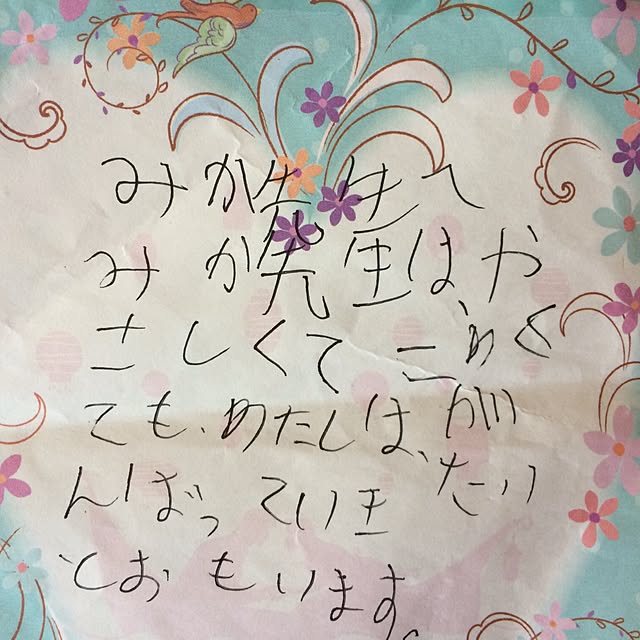 みか先生へ
みか先生は、や
さしくてこわく
ても、わたしは、が
んばっていきたい
とおもいます。